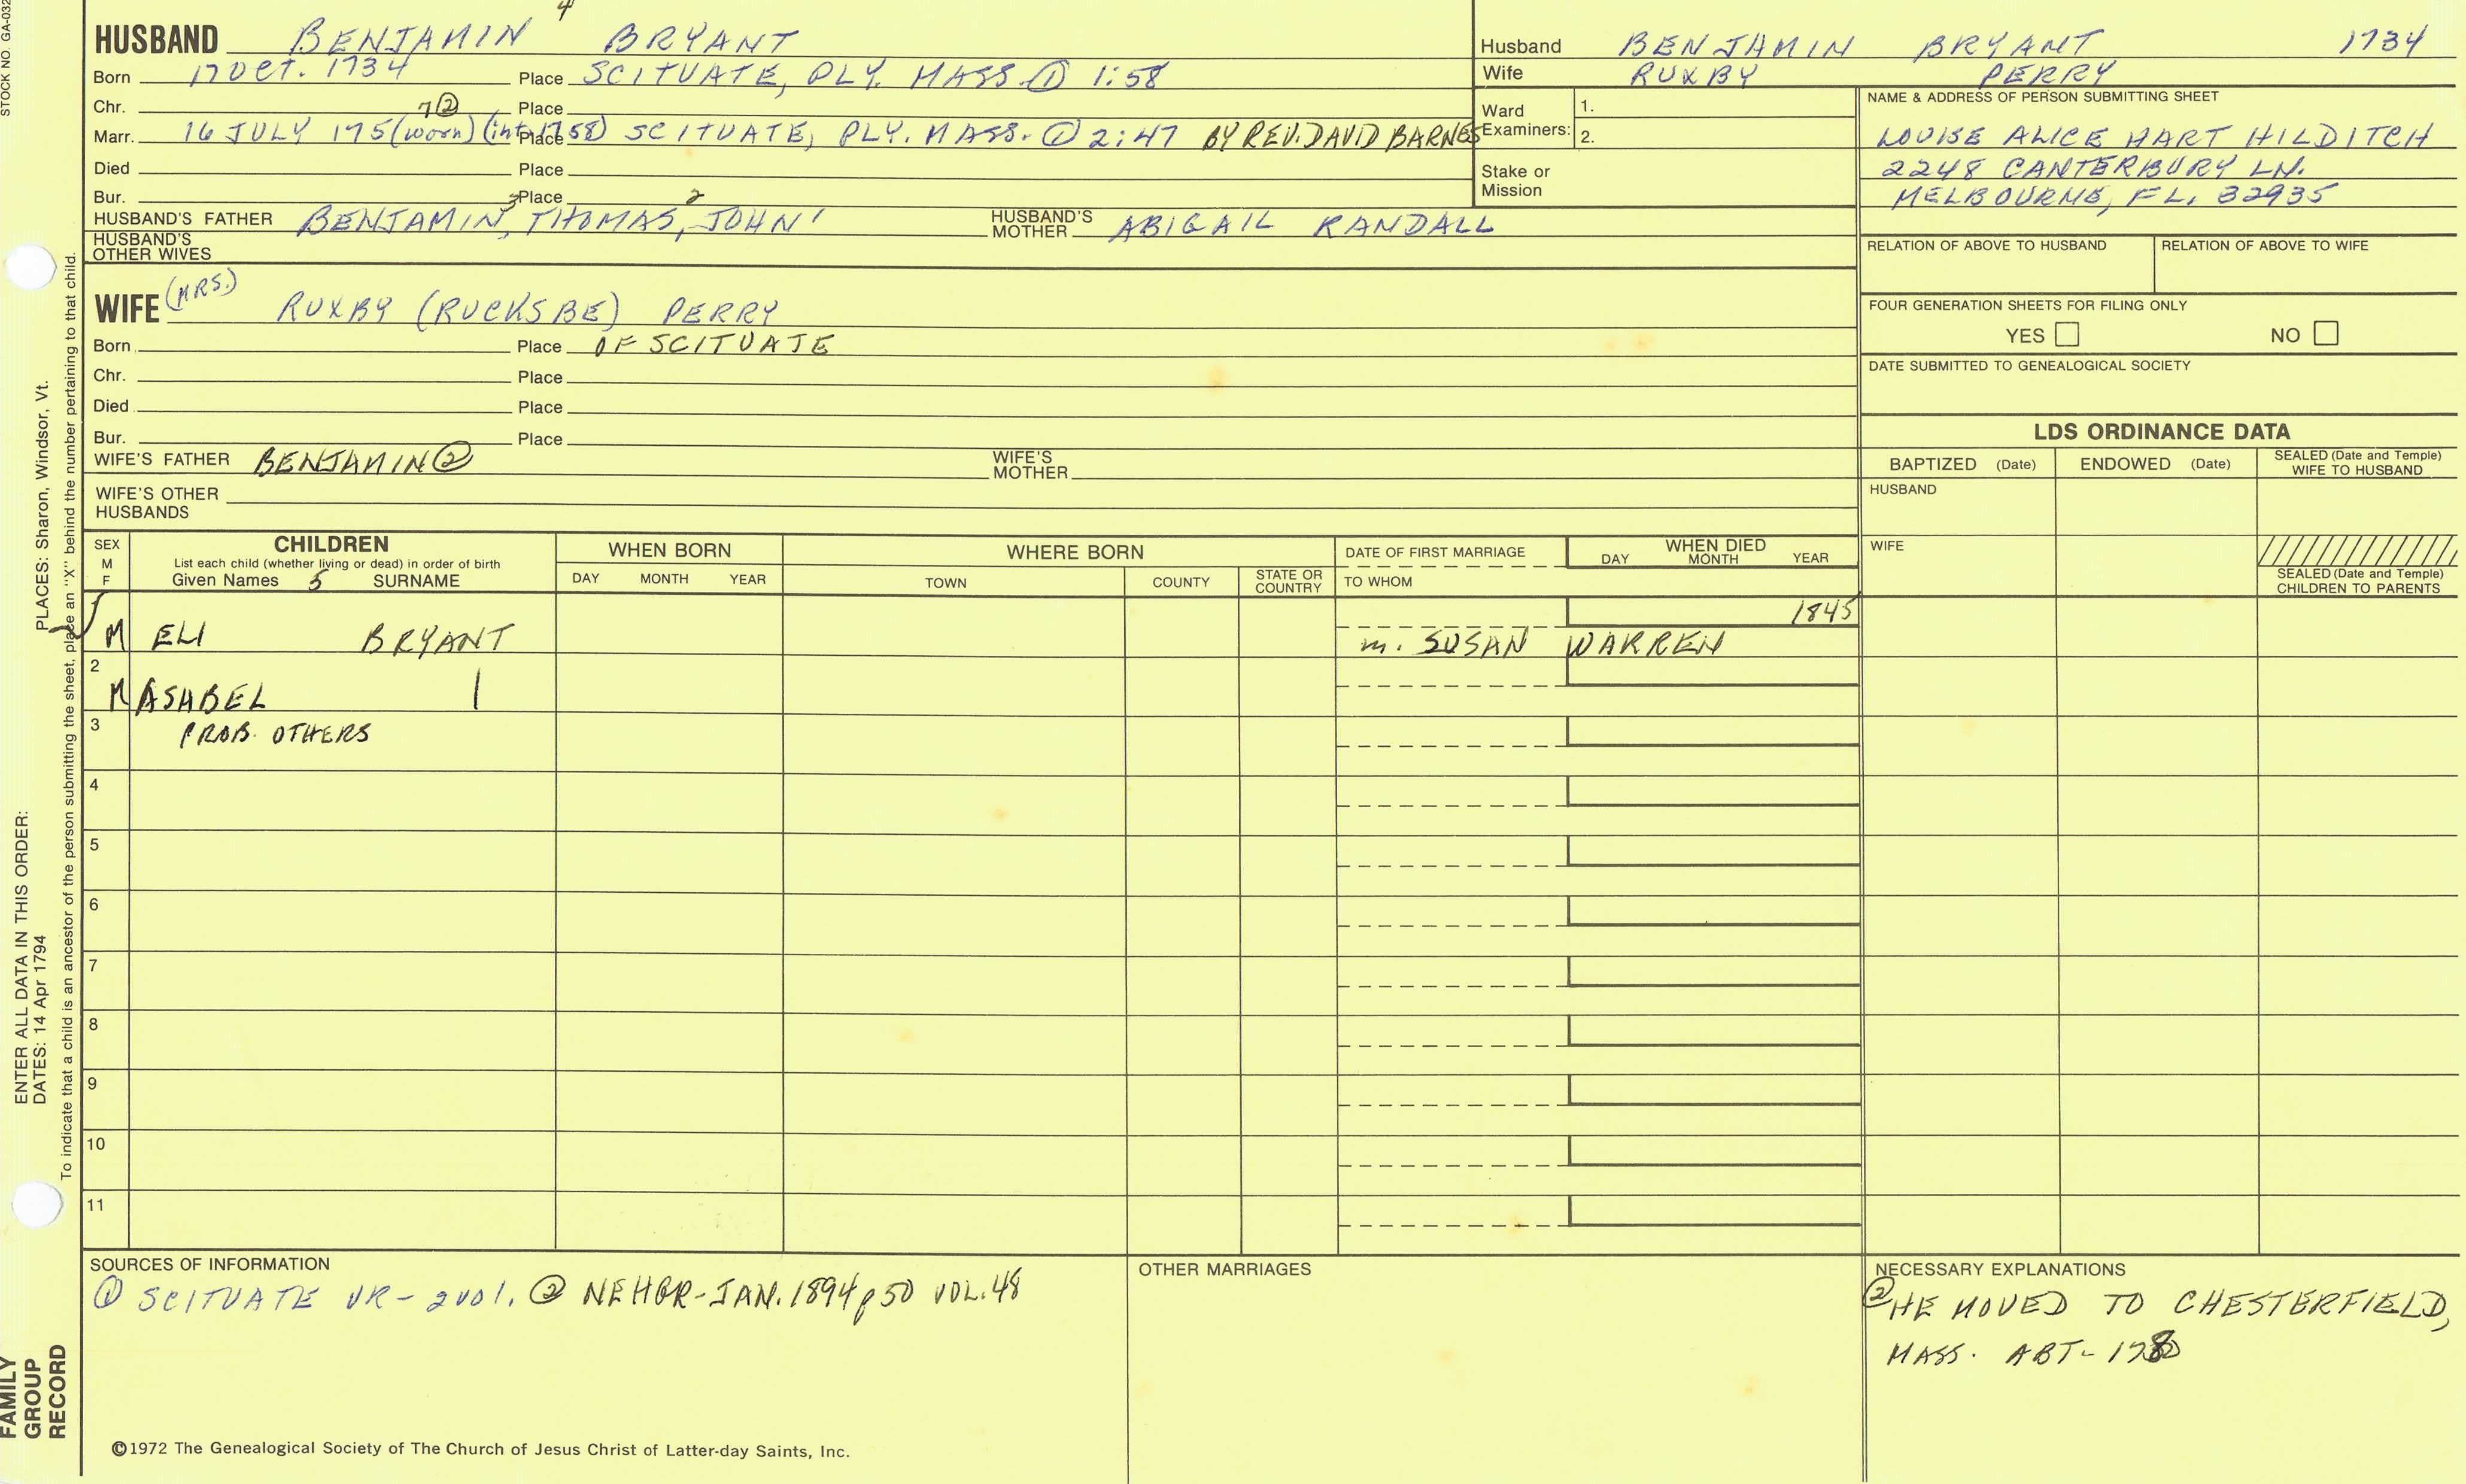 STOCK NO. GA-032
4
HUSBAND BENJAMIN BRYANT
Born 17 OCT. 1734 Place SCITUATE, PLY. MASS. ① 1:58
Chr. Place
7②
Marr. 16 JULY 175(worn) (int. 1758) Place SCITUATE, PLY. MASS. ① 2:47 BY REV. DAVID BARNES
Died Place
Bur. Place
HUSBAND'S FATHER BENJAMIN,3 THOMAS,2 JOHN1 HUSBAND'S MOTHER ABIGAIL RANDALL
HUSBAND'S OTHER WIVES
WIFE (MRS.) RUXBY (RUCKSBE) PERRY
Born Place OF SCITUATE
Chr. Place
Died Place
Bur. Place
WIFE'S FATHER BENJAMIN② WIFE'S MOTHER
WIFE'S OTHER HUSBANDS
Husband BENJAMIN BRYANT 1734
Wife RUXBY PERRY
Ward Examiners: 1.
2.
Stake or Mission
NAME & ADDRESS OF PERSON SUBMITTING SHEET
LOUISE ALICE HART HILDITCH
2248 CANTERBURY LN.
MELBOURNE, FL. 32935
RELATION OF ABOVE TO HUSBAND RELATION OF ABOVE TO WIFE
FOUR GENERATION SHEETS FOR FILING ONLY
YES NO
DATE SUBMITTED TO GENEALOGICAL SOCIETY
LDS ORDINANCE DATA
BAPTIZED (Date) ENDOWED (Date) SEALED (Date and Temple) WIFE TO HUSBAND
HUSBAND
WIFE
SEALED (Date and Temple) CHILDREN TO PARENTS
SEX M F
CHILDREN
List each child (whether living or dead) in order of birth
Given Names 5 SURNAME
WHEN BORN
DAY MONTH YEAR
WHERE BORN
TOWN COUNTY STATE OR COUNTRY
DATE OF FIRST MARRIAGE
TO WHOM
WHEN DIED
DAY MONTH YEAR
1845
M ELI BRYANT m. SUSAN WARREN
2
M ASHBEL |
3 PROB. OTHERS
4
5
6
7
8
9
10
11
SOURCES OF INFORMATION
① SCITUATE VR - 2 vol. ② NEHGR - JAN. 1894 p 50 VOL. 48
OTHER MARRIAGES
NECESSARY EXPLANATIONS
② HE MOVED TO CHESTERFIELD,
MASS. ABT - 1780
©1972 The Genealogical Society of The Church of Jesus Christ of Latter-day Saints, Inc.
To indicate that a child is an ancestor of the person submitting the sheet, place an "X" behind the number pertaining to that child.
ENTER ALL DATA IN THIS ORDER:
DATES: 14 Apr 1794 PLACES: Sharon, Windsor, Vt.
FAMILY
GROUP
RECORD